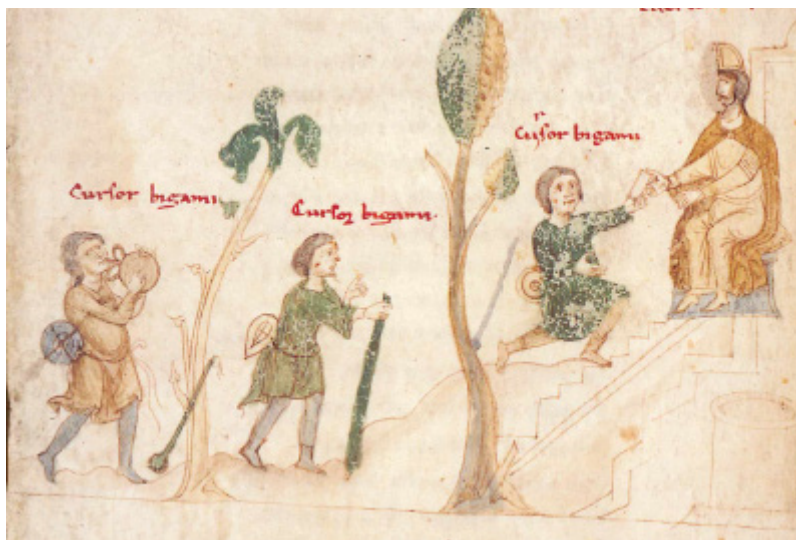 Cursor bigami
Cursor bigami.
Cursor bigami